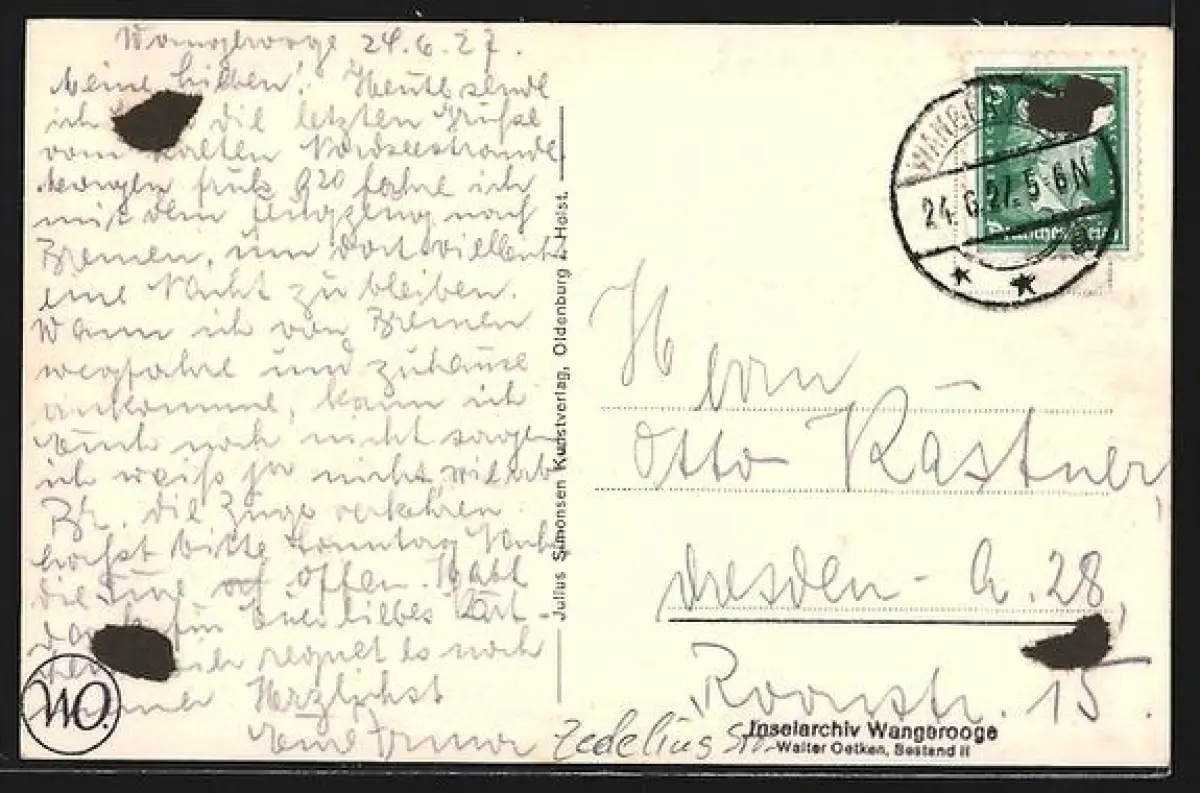 Wangerooge 24.6.27.
Meine Lieben! Heute sende
ich die letzten Grüsse
vom kalten Nordseestrande.
Morgen früh 9 20 fahre ich
mit dem Flugzeug nach
Bremen, um dort vielleicht
eine Nacht zu bleiben.
Wann ich von Bremen
wegfahre und zuhause
ankomme, kann ich
Euch noch nicht sagen
ich weiss ja nicht, wie ab
Br. die Züge verkehren
Lasst bitte Sonntag Nacht
die Türe auf offen. Habt
Dank für Euer liebes Kärt-
regnet es noch
Herzlichst
Eure Irma
WO.
Julius Simonsen Kunstverlag, Oldenburg i. Holst.
24.6.27. 5-6N
a
Deutsches Reich
Herrn
Otto Kästner,
Dresden - A. 28,
Roonstr. 15
Zedelius Str.
Inselarchiv Wangerooge
Walter Oetken, Bestand II